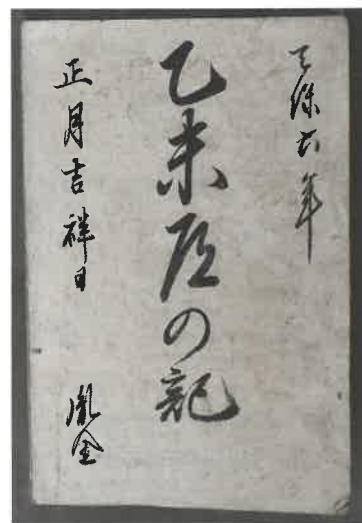 天保六年
乙未の記
正月吉祥日
胤